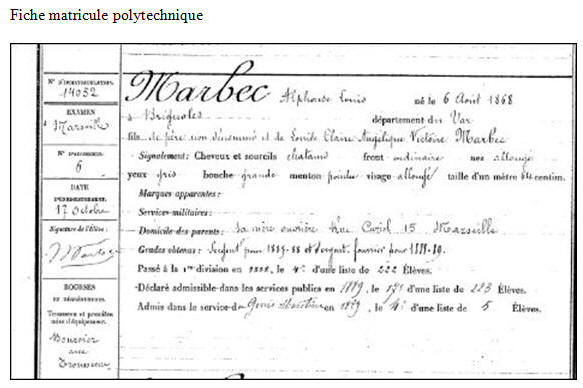 Fiche matricule polytechnique
N° D'IMMATRICULATION.
14052
EXAMEN
à Marseille
N° D'INSCRIPTION.
6
DATE
D'ENREGISTREMENT.
17 octobre
Signature de l'Élève:
Marbec
BOURSES
ET DÉGRÈVEMENTS.
Trousseau et première mise d'équipement.
Boursier
avec
Trousseau
Marbec Alphonse Louis né le 6 Août 1868
à Brignoles département du Var
fils de père non dénommé et de Louise Claire Angélique Victoire Marbec
Signalement: Cheveux et sourcils chatains front ordinaire nez allongé
yeux gris bouche grande menton pointu visage allongé taille d'un mètre 64 centim.
Marques apparentes:
Services militaires:
Domicile des parents: sa mère ouvrière Rue Curiol 15 Marseille
Grades obtenus: Sergent pour et sergent fourrier pour
Passé à la 1re division en 1888, le 4e d'une liste de 222 Élèves.
Déclaré admissible dans les services publics en 1889, le d'une liste de 223 Élèves.
Admis dans le service de Génie Maritime en 1889, le 4e d'une liste de 5 Élèves.